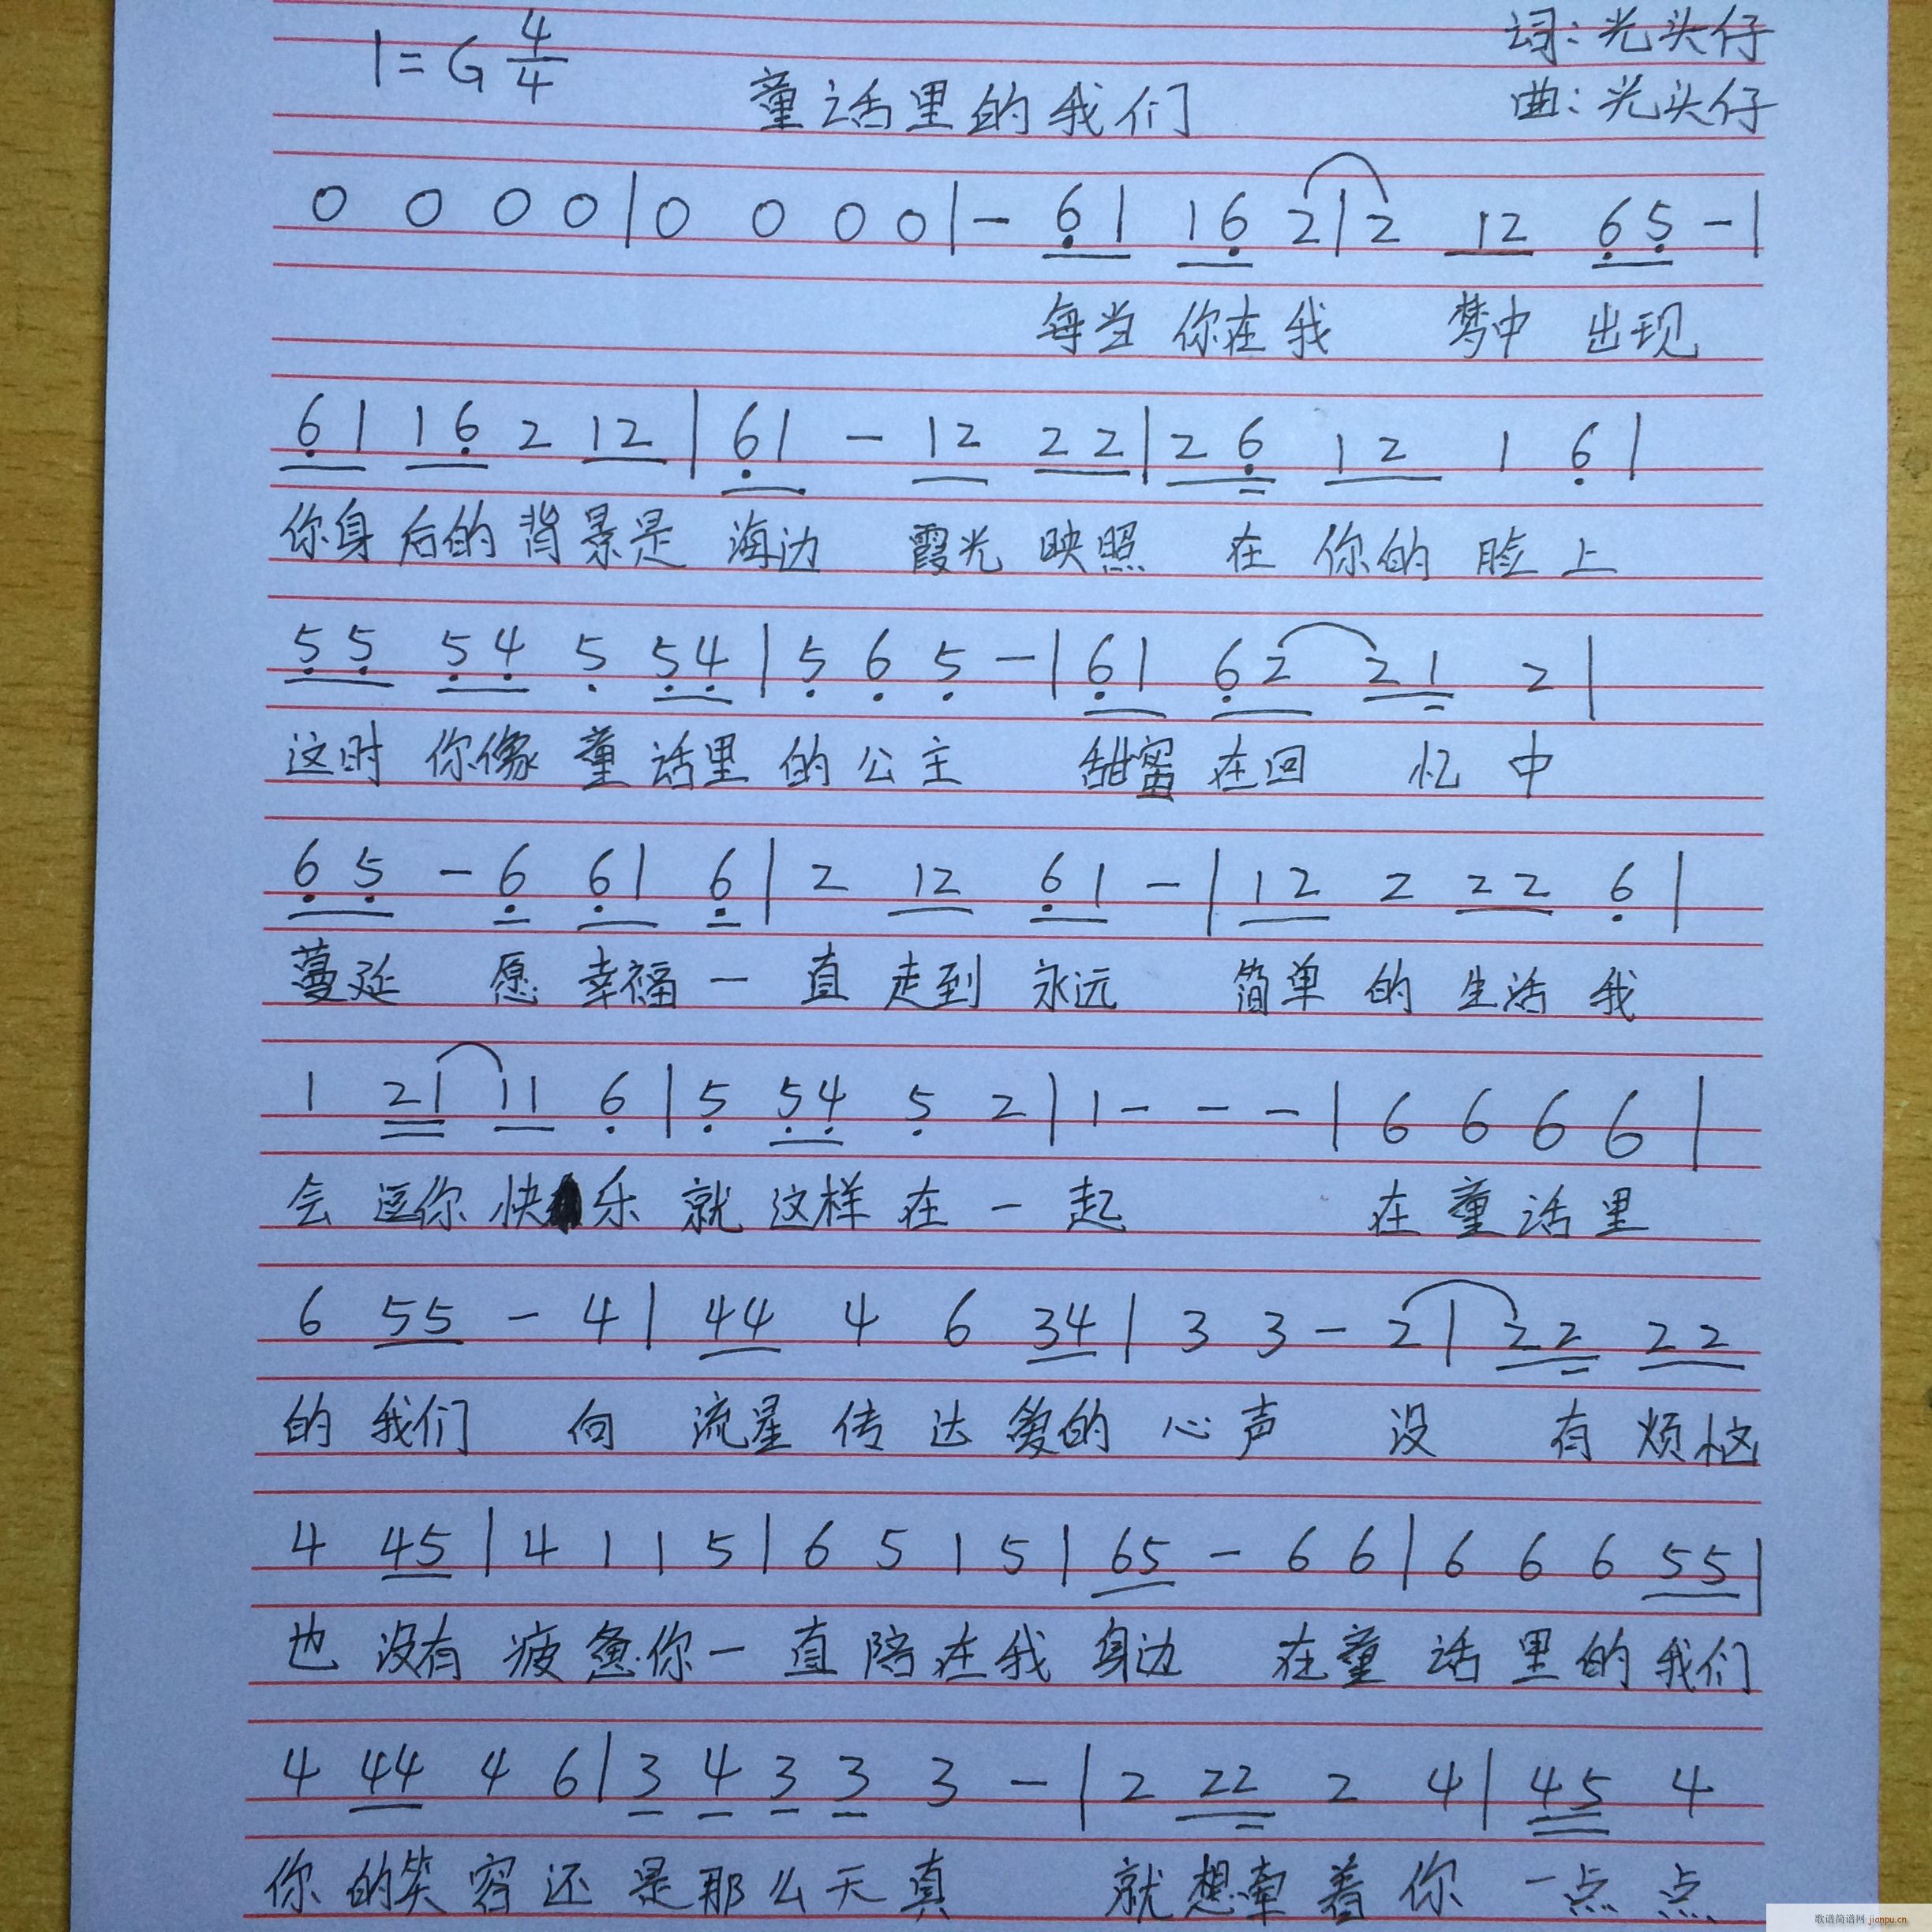 词：光头仔
1=G 4/4 童话里的我们 曲：光头仔
0 0 0 0 | 0 0 0 0 | - 61 16 2 | 2 12 65 - |
每当 你在我 梦中 出现
61 16 2 12 | 61 - 12 22 | 26 12 1 6 |
你身后的背景是 海边 霞光 映照 在你的脸上
55 54 5 54 | 5 6 5 - | 61 62 21 2 |
这时 你像童话里的公主 在回忆中
65 - 6 61 6 | 2 12 61 - | 12 2 22 6 |
蔓延 愿幸福一直走到永远 简单的生活我
1 21 11 6 | 5 54 5 2 | 1 - - - | 6 6 6 6 |
会逗你快乐 就这样在一起 在童话里
6 55 - 4 | 44 4 6 34 | 3 3 - 2 | 22 22
的我们 向流星传达 的心声 没有烦恼
4 45 | 4 1 1 5 | 6 5 1 5 | 65 - 6 6 | 6 6 6 55 |
也没有疲惫你一直陪在我身边 在童话里的我们
4 44 4 6 | 3 4 3 3 3 - | 2 22 2 4 | 45 4
你的笑容还是那么天真 就想牵着你 一点点
歌谱简谱网 jianpu.cn